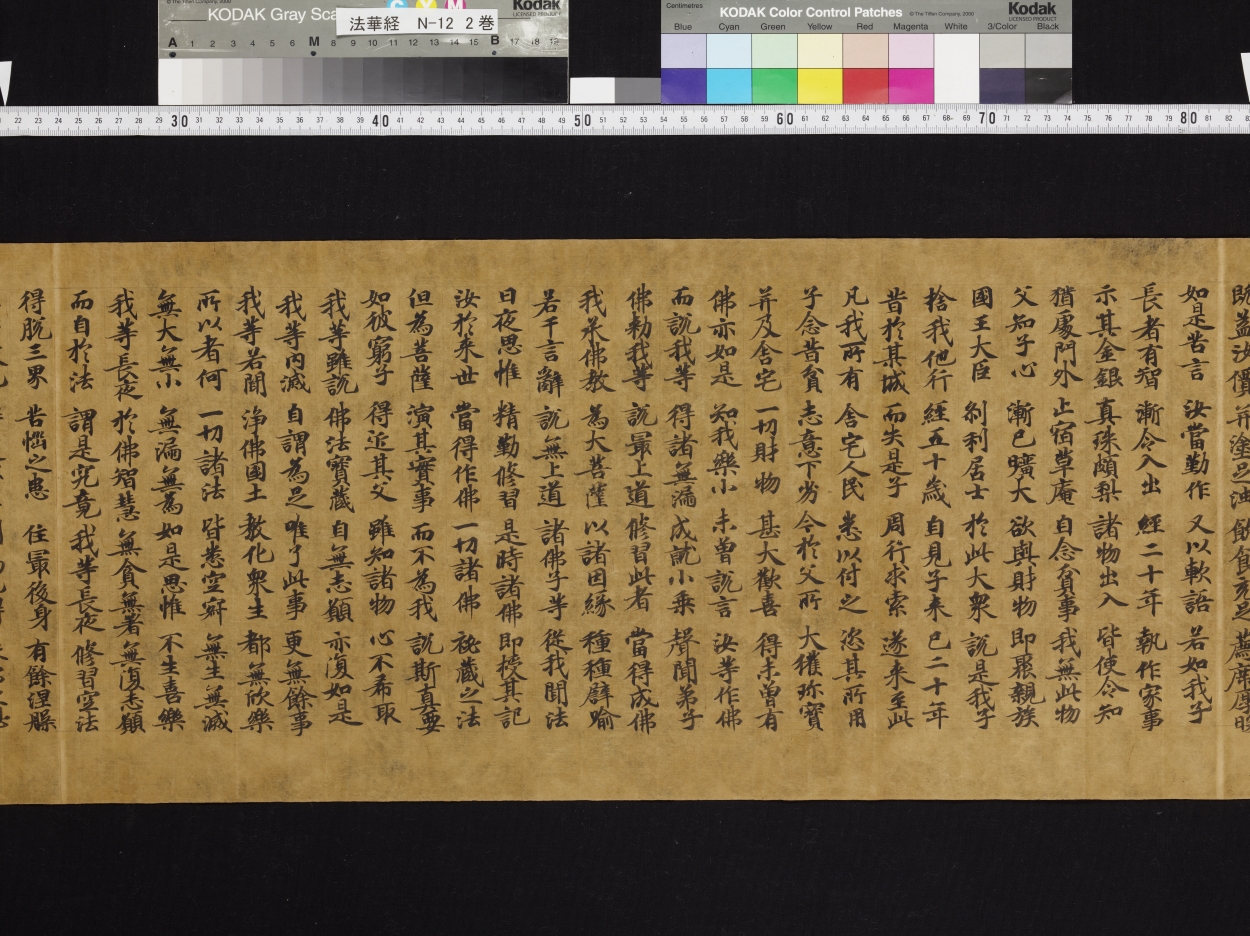 © The Tiffen Company, 2000
KODAK Gray Sca
C Y M
Kodak
LICENSED PRODUCT
法華経 N-12 2巻
A 1 2 3 4 5 6 M 8 9 10 11 12 13 14 15 B 17 18 19
Centimetres
KODAK Color Control Patches
© The Tiffen Company, 2000
Kodak
LICENSED PRODUCT
Blue Cyan Green Yellow Red Magenta White 3/Color Black
22 23 24 25 26 27 28 29 30 31 32 33 34 35 36 37 38 39 40 41 42 43 44 45 46 47 48 49 50 51 52 53 54 55 56 57 58 59 60 61 62 63 64 65 66 67 68 69 70 71 72 73 74 75 76 77 78 79 80 81 82
既益汝價 并塗足油 飲食充足 薦席厚暖
如是苦言 汝當勤作 又以軟語 若如我子
長者有智 漸令入出 經二十年 執作家事
示其金銀 真珠頗梨 諸物出入 皆使令知
猶處門外 止宿草庵 自念貧事 我無此物
父知子心 漸已曠大 欲與財物 即聚親族
國王大臣 剎利居士 於此大衆 說是我子
捨我他行 經五十歲 自見子来 已二十年
昔於某城 而失是子 周行求索 遂来至此
凡我所有 舍宅人民 悉以付之 恣其所用
子念昔貧 志意下劣 今於父所 大獲珎寶
并及舍宅 一切財物 甚大歡喜 得未曾有
佛亦如是 知我樂小 未曾說言 汝等作佛
而說我等 得諸無漏 成就小乘 聲聞弟子
佛勑我等 說最上道 修習此者 當得成佛
我承佛教 為大菩薩 以諸因緣 種種譬喻
若干言辭 說無上道 諸佛子等 從我聞法
日夜思惟 精勤修習 是時諸佛 即授其記
汝於来世 當得作佛 一切諸佛 祕藏之法
但為菩薩 演其實事 而不為我 說斯真要
如彼窮子 得近其父 雖知諸物 心不希取
我等雖說 佛法寶藏 自無志願 亦復如是
我等內滅 自謂為足 唯了此事 更無餘事
我等若聞 淨佛國土 教化衆生 都無欣樂
所以者何 一切諸法 皆悉空寂 無生無滅
無大無小 無漏無為 如是思惟 不生喜樂
我等長夜 於佛智慧 無貪無著 無復志願
而自於法 謂是究竟 我等長夜 修習空法
得脫三界 苦惱之患 住最後身 有餘涅槃